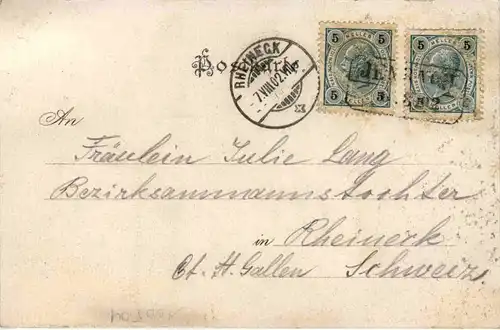 RHEINECK
-7.VIII.02.VII
5 HELLER 5
5 HELLER 5
An
Fräulein Julie Lang
Bezirksammannstochter
in Rheineck
Ct. St. Gallen Schweiz